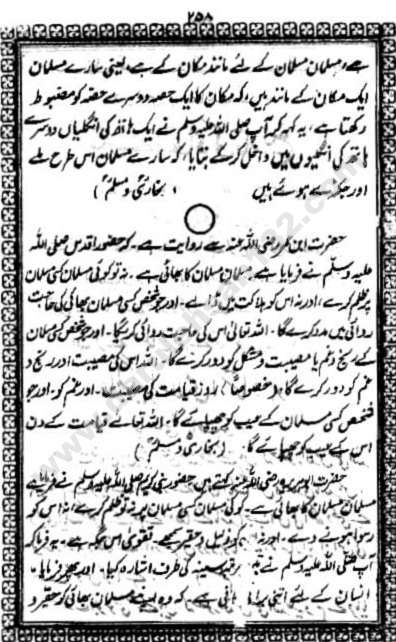 ۲۵۸
ہے، مسلمان مسلمان کے لئے مانند مکان کے ہے، یعنی سارے مسلمان
ایک مکان کے مانند ہیں، کہ مکان کا ایک حصہ دوسرے حصہ کو مضبوط
رکھتا ہے، یہ کہہ کر آپ صلی اللہ علیہ وسلم نے ایک ہاتھ کی انگلیاں دوسرے
ہاتھ کی انگلیوں میں داخل کر کے بتایا، کہ سارے مسلمان اس طرح ملے
اور جکڑے ہوئے ہیں ( بخاری و مسلم )
حضرت ابن عمر رضی اللہ عنہ سے روایت ہے۔ کہ حضور اقدس صلی اللہ
علیہ وسلم نے فرمایا ہے مسلمان مسلمان کا بھائی ہے۔ نہ تو کوئی مسلمان کسی مسلمان
پر ظلم کرے، اور نہ اس کو ہلاکت میں ڈالے۔ اور جو شخص کسی مسلمان بھائی کی حاجت
روائی میں مدد کرے گا۔ اللہ تعالیٰ اس کی حاجت روائی کریگا۔ اور جو شخص کسی مسلمان
کے رنج و غم یا مصیبت و مشکل کو دور کرے گا۔ اللہ اس کی مصیبت اور رنج و
غم کو دور کرے گا، (خصوصاً) روز قیامت کی مصیبت۔ اور غم کو۔ اور جو
شخص کسی مسلمان کے عیب کو چھپائے گا، اللہ تعالےٰ قیامت کے دن
اس کے عیب کو چھپائے گا۔ (بخاری و مسلم)
حضرت ابو ہریرہ رضی اللہ عنہ کہتے ہیں حضور نبی کریم صلی اللہ علیہ وسلم نے فرمایا ہے
مسلمان مسلمان کا بھائی ہے۔ کوئی مسلمان کسی مسلمان پر نہ تو ظلم کرے، نہ اس کو
رسوا ہونے دے۔ اور نہ کو ذلیل و حقیر سمجھے۔ تقویٰ اس جگہ ہے۔ یہ فرما کر
آپ صلی اللہ علیہ وسلم نے سینہ کی طرف اشارہ کیا۔ اور پھر فرمایا،
انسان کے لئے اتنی برائی کافی ہے، کہ وہ اپنے مسلمان بھائی کو حقیر و